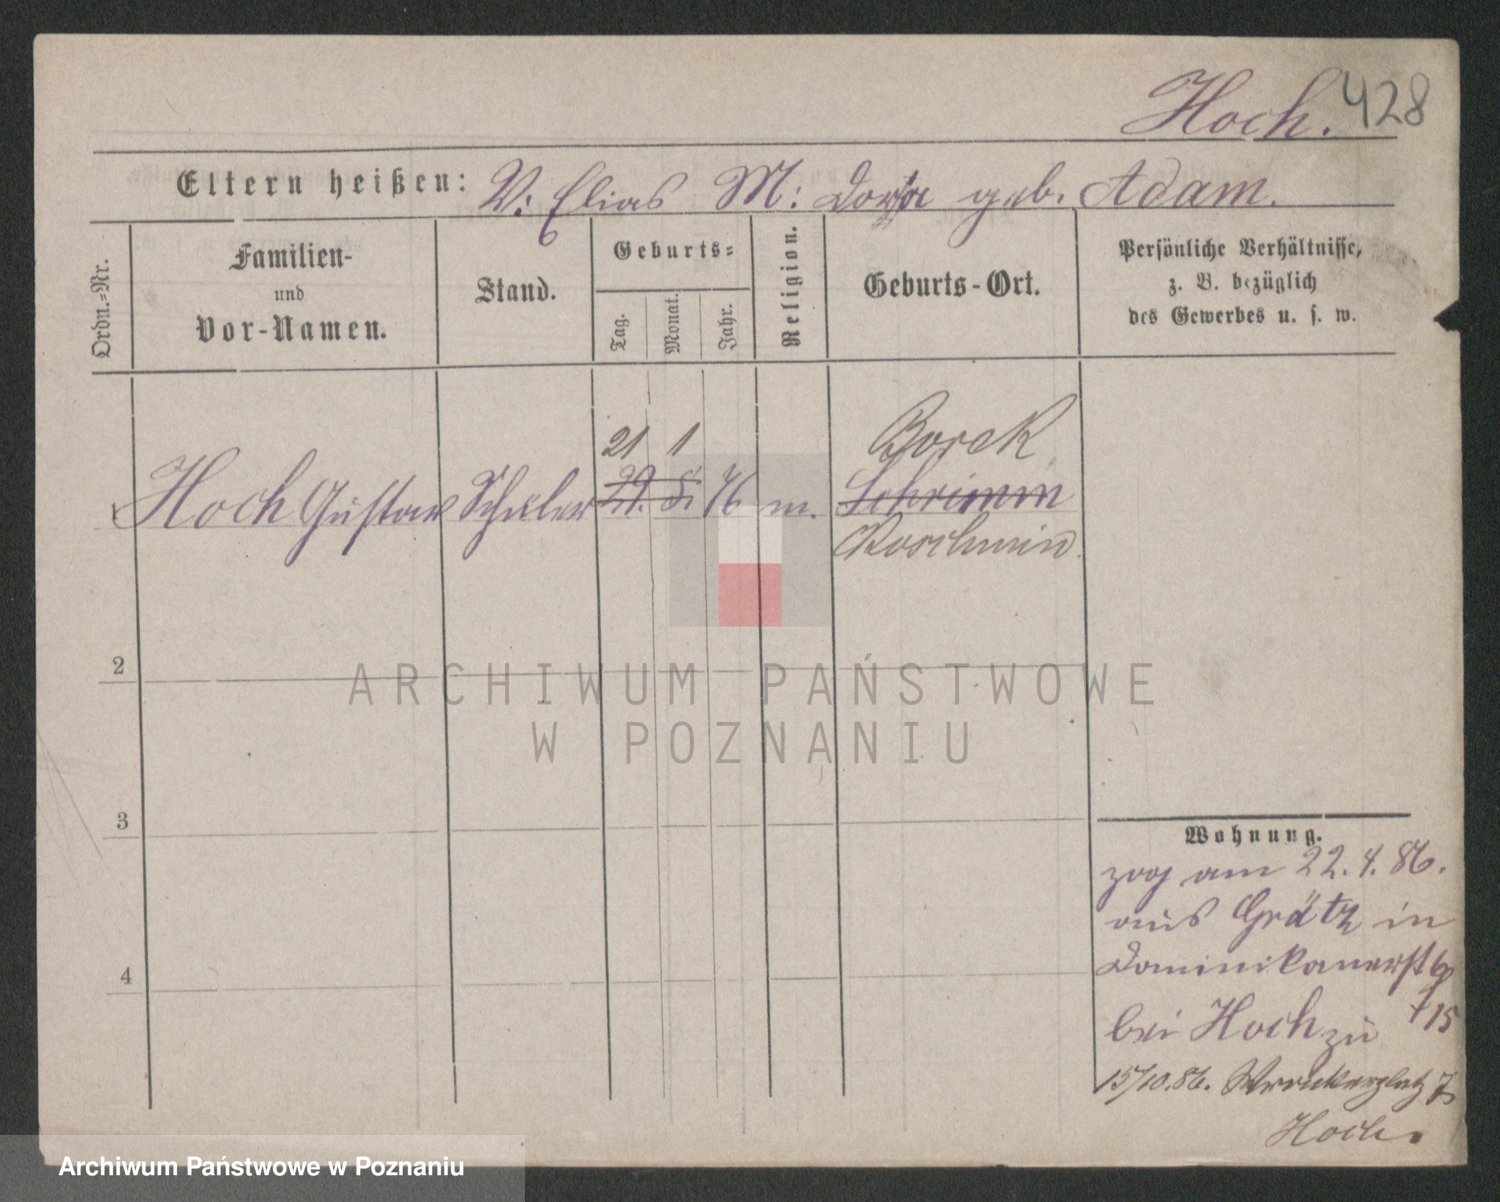 Hoch. 428
Eltern heißen: V: Elias M: Dora geb. Adam.
Ordn.=Nr.
Familien-
und
Vor-Namen.
Stand.
Geburts=
Tag.
Monat.
Jahr.
Religion.
Geburts-Ort.
Persönliche Verhältnisse,
z. B. bezüglich
des Gewerbes u. s. w.
21 1 Borek
1 Hoch Gustav Schüler 29. 8. 76 m. Schrimm
Koschmin
2
3
4
Wohnung.
zog am 22.4.86.
aus Grätz in
Dominikanerst 6
bei Hoch zu
15/10.86. 7
Hoch.
ARCHIWUM PAŃSTWOWE
W POZNANIU
Archiwum Państwowe w Poznaniu